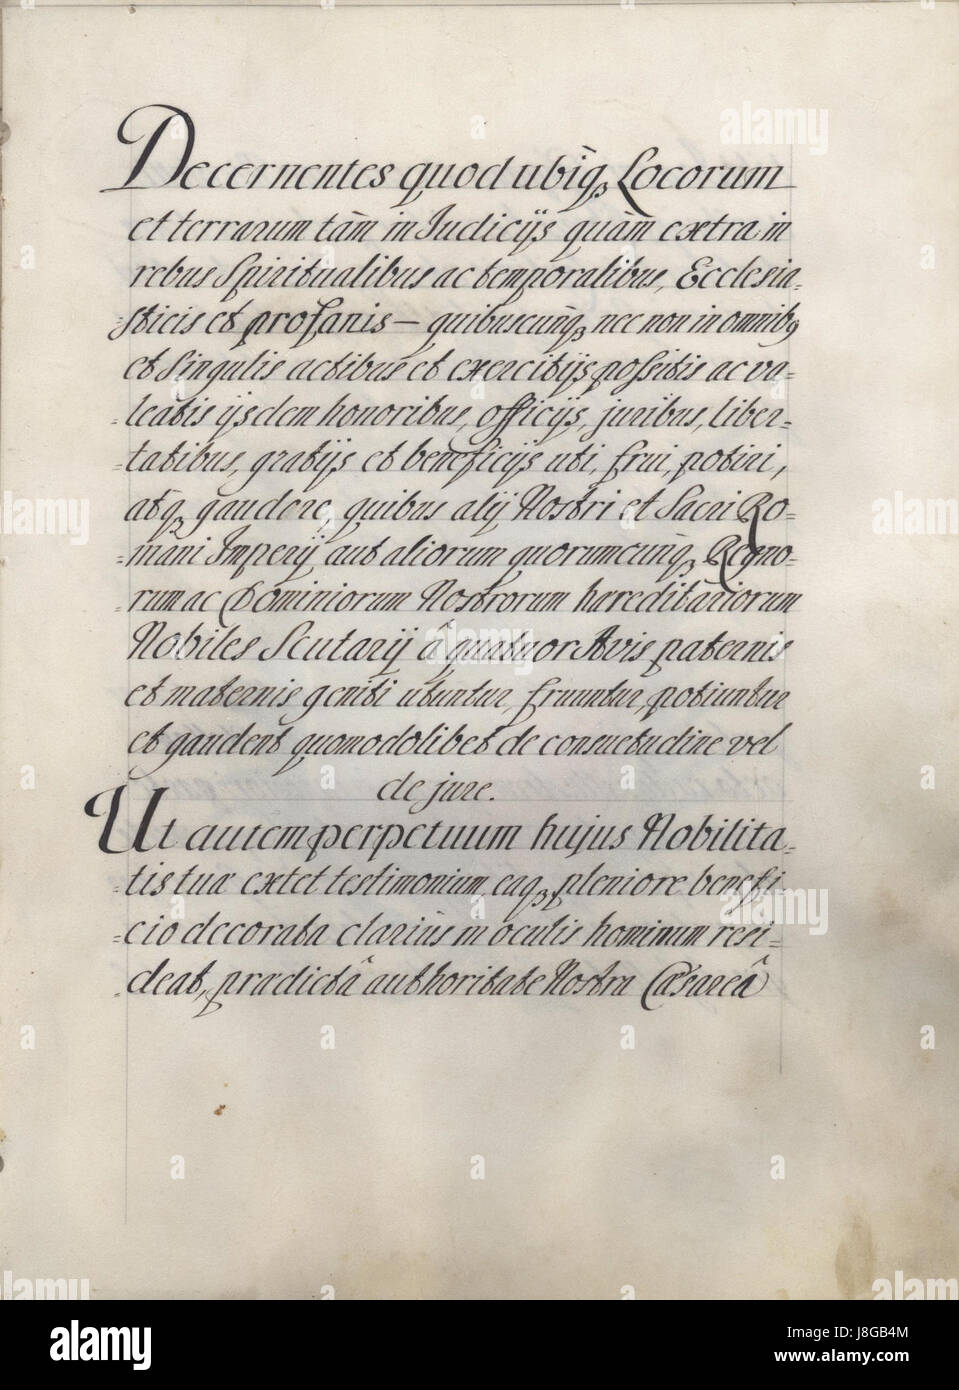 Decernentes quod ubiq₃ Locorum
et terrarum tàm in Judicijs quàm extra in
rebus Spiritualibus ac temporalibus, Ecclesia=
=sticis et profanis — quibuscunq₃ nec non in omnib9
et Singulis actibus et exercitijs possitis ac va=
=leatis ijsdem honoribus, officijs, juribus, liber=
=tatibus, gratijs et beneficijs uti, frui, potiri,
atq₃ gaudere, quibus alij Nostri et Sacri Ro=
=mani Imperij aut aliorum quorumcunq₃ Regno=
=rum ac Dominiorum Nostrorum hæreditariorum
Nobiles Scutarij â quatuor Avis paternis
et maternis geniti utuntur, fruuntur, potiuntur
et gaudent quomodolibet de consuetudine vel
de jure.
Ut autem perpetuum hujus Nobilita=
=tis tuæ extet testimonium, eaq₃ pleniore benefi=
=cio decorata clariùs in oculis hominum resi=
=deat, prædictâ authoritate Nostra Cæsareâ
alamy
Image ID: J8GB4M
www.alamy.com